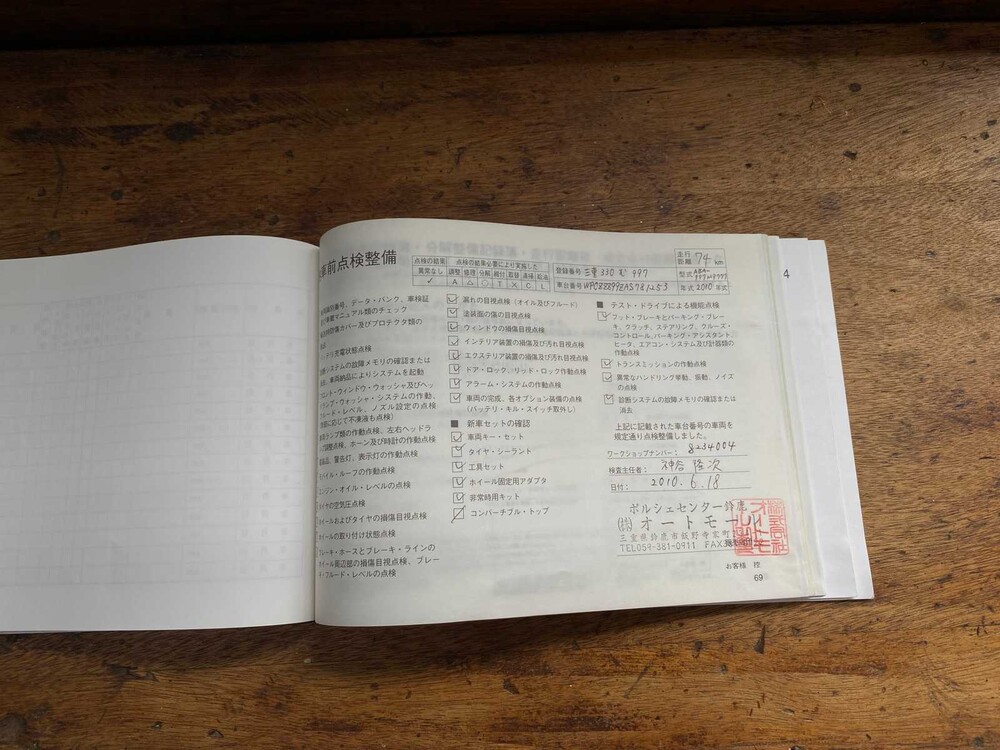 車前点検整備
点検の結果 点検の結果必要により実施した
異常なし 調整 修理 分解 締付 取替 清掃 給油
✓ A △ ○ T × C L
登録番号 三重 330 む 997
走行距離 74 km
車台番号 WP0ZZZ99ZAS781253
型式
年式 2010 年式
データ・バンク、車検証
マニュアル類のチェック
カバー及びプロテクタ類の
充電状態点検
システムの故障メモリの確認または
車両納品によりシステムを起動
ウィンド・ウォッシャ及びヘッ
ウォッシャ・システムの作動、
フルード・レベル、ノズル設定の点検
に応じて不凍液も点検)
ランプ類の作動点検、左右ヘッドラ
調整点検、ホーン及び時計の作動点検
警告灯、表示灯の作動点検
ルーフの作動点検
エンジン・オイル・レベルの点検
タイヤの空気圧点検
ホイールおよびタイヤの損傷目視点検
の取り付け状態点検
ブレーキ・ホースとブレーキ・ラインの
ホイール周辺部の損傷目視点検、ブレー
キ・フルード・レベルの点検
漏れの目視点検(オイル及びフルード)
塗装面の傷の目視点検
ウィンドウの損傷目視点検
インテリア装置の損傷及び汚れ目視点検
エクステリア装置の損傷及び汚れ目視点検
ドア・ロック、リッド・ロック作動点検
アラーム・システムの作動点検
車両の完成、各オプション装備の点検
(バッテリ・キル・スイッチ取外し)
■ 新車セットの確認
車両キー・セット
タイヤ・シーラント
工具セット
ホイール固定用アダプタ
非常時用キット
コンバーチブル・トップ
■ テスト・ドライブによる機能点検
フット・ブレーキとパーキング・ブレー
キ、クラッチ、ステアリング、クルーズ・
コントロール、パーキング・アシスタント、
ヒータ、エアコン・システム及び計器類の
作動点検
トランスミッションの作動点検
異常なハンドリング挙動、振動、ノイズ
の点検
診断システムの故障メモリの確認または
消去
上記に記載された車台番号の車両を
規定通り点検整備しました。
ワークショップナンバー: 8234004
検査主任者: 神谷 隆次
日付: 2010.6.18
ポルシェセンター鈴鹿
(株)オートモール
三重県鈴鹿市飯野寺家町
TEL059-381-0911 FAX
お客様 控
69
4